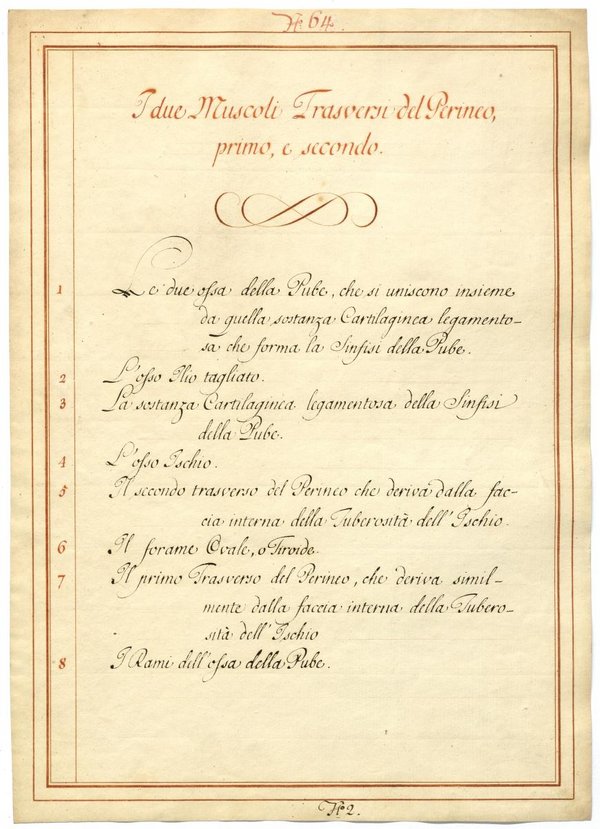 N.o 64.
I due Muscoli Trasversi del Perineo,
primo, e secondo.
1 Le due ossa della Pube, che si uniscono insieme
da quella sostanza Cartilaginea legamento-
sa che forma la Sinfisi della Pube.
2 L'osso Ilio tagliato.
3 La sostanza Cartilaginea legamentosa della Sinfisi
della Pube.
4 L'osso Ischio.
5 Il secondo trasverso del Perineo che deriva dalla fac-
cia interna della Tuberosità dell'Ischio.
6 Il forame Ovale, o Tiroide.
7 Il primo Trasverso del Perineo, che deriva simil-
mente dalla faccia interna della Tubero-
sità dell'Ischio
8 I Rami dell'ossa della Pube.
N.o 2.